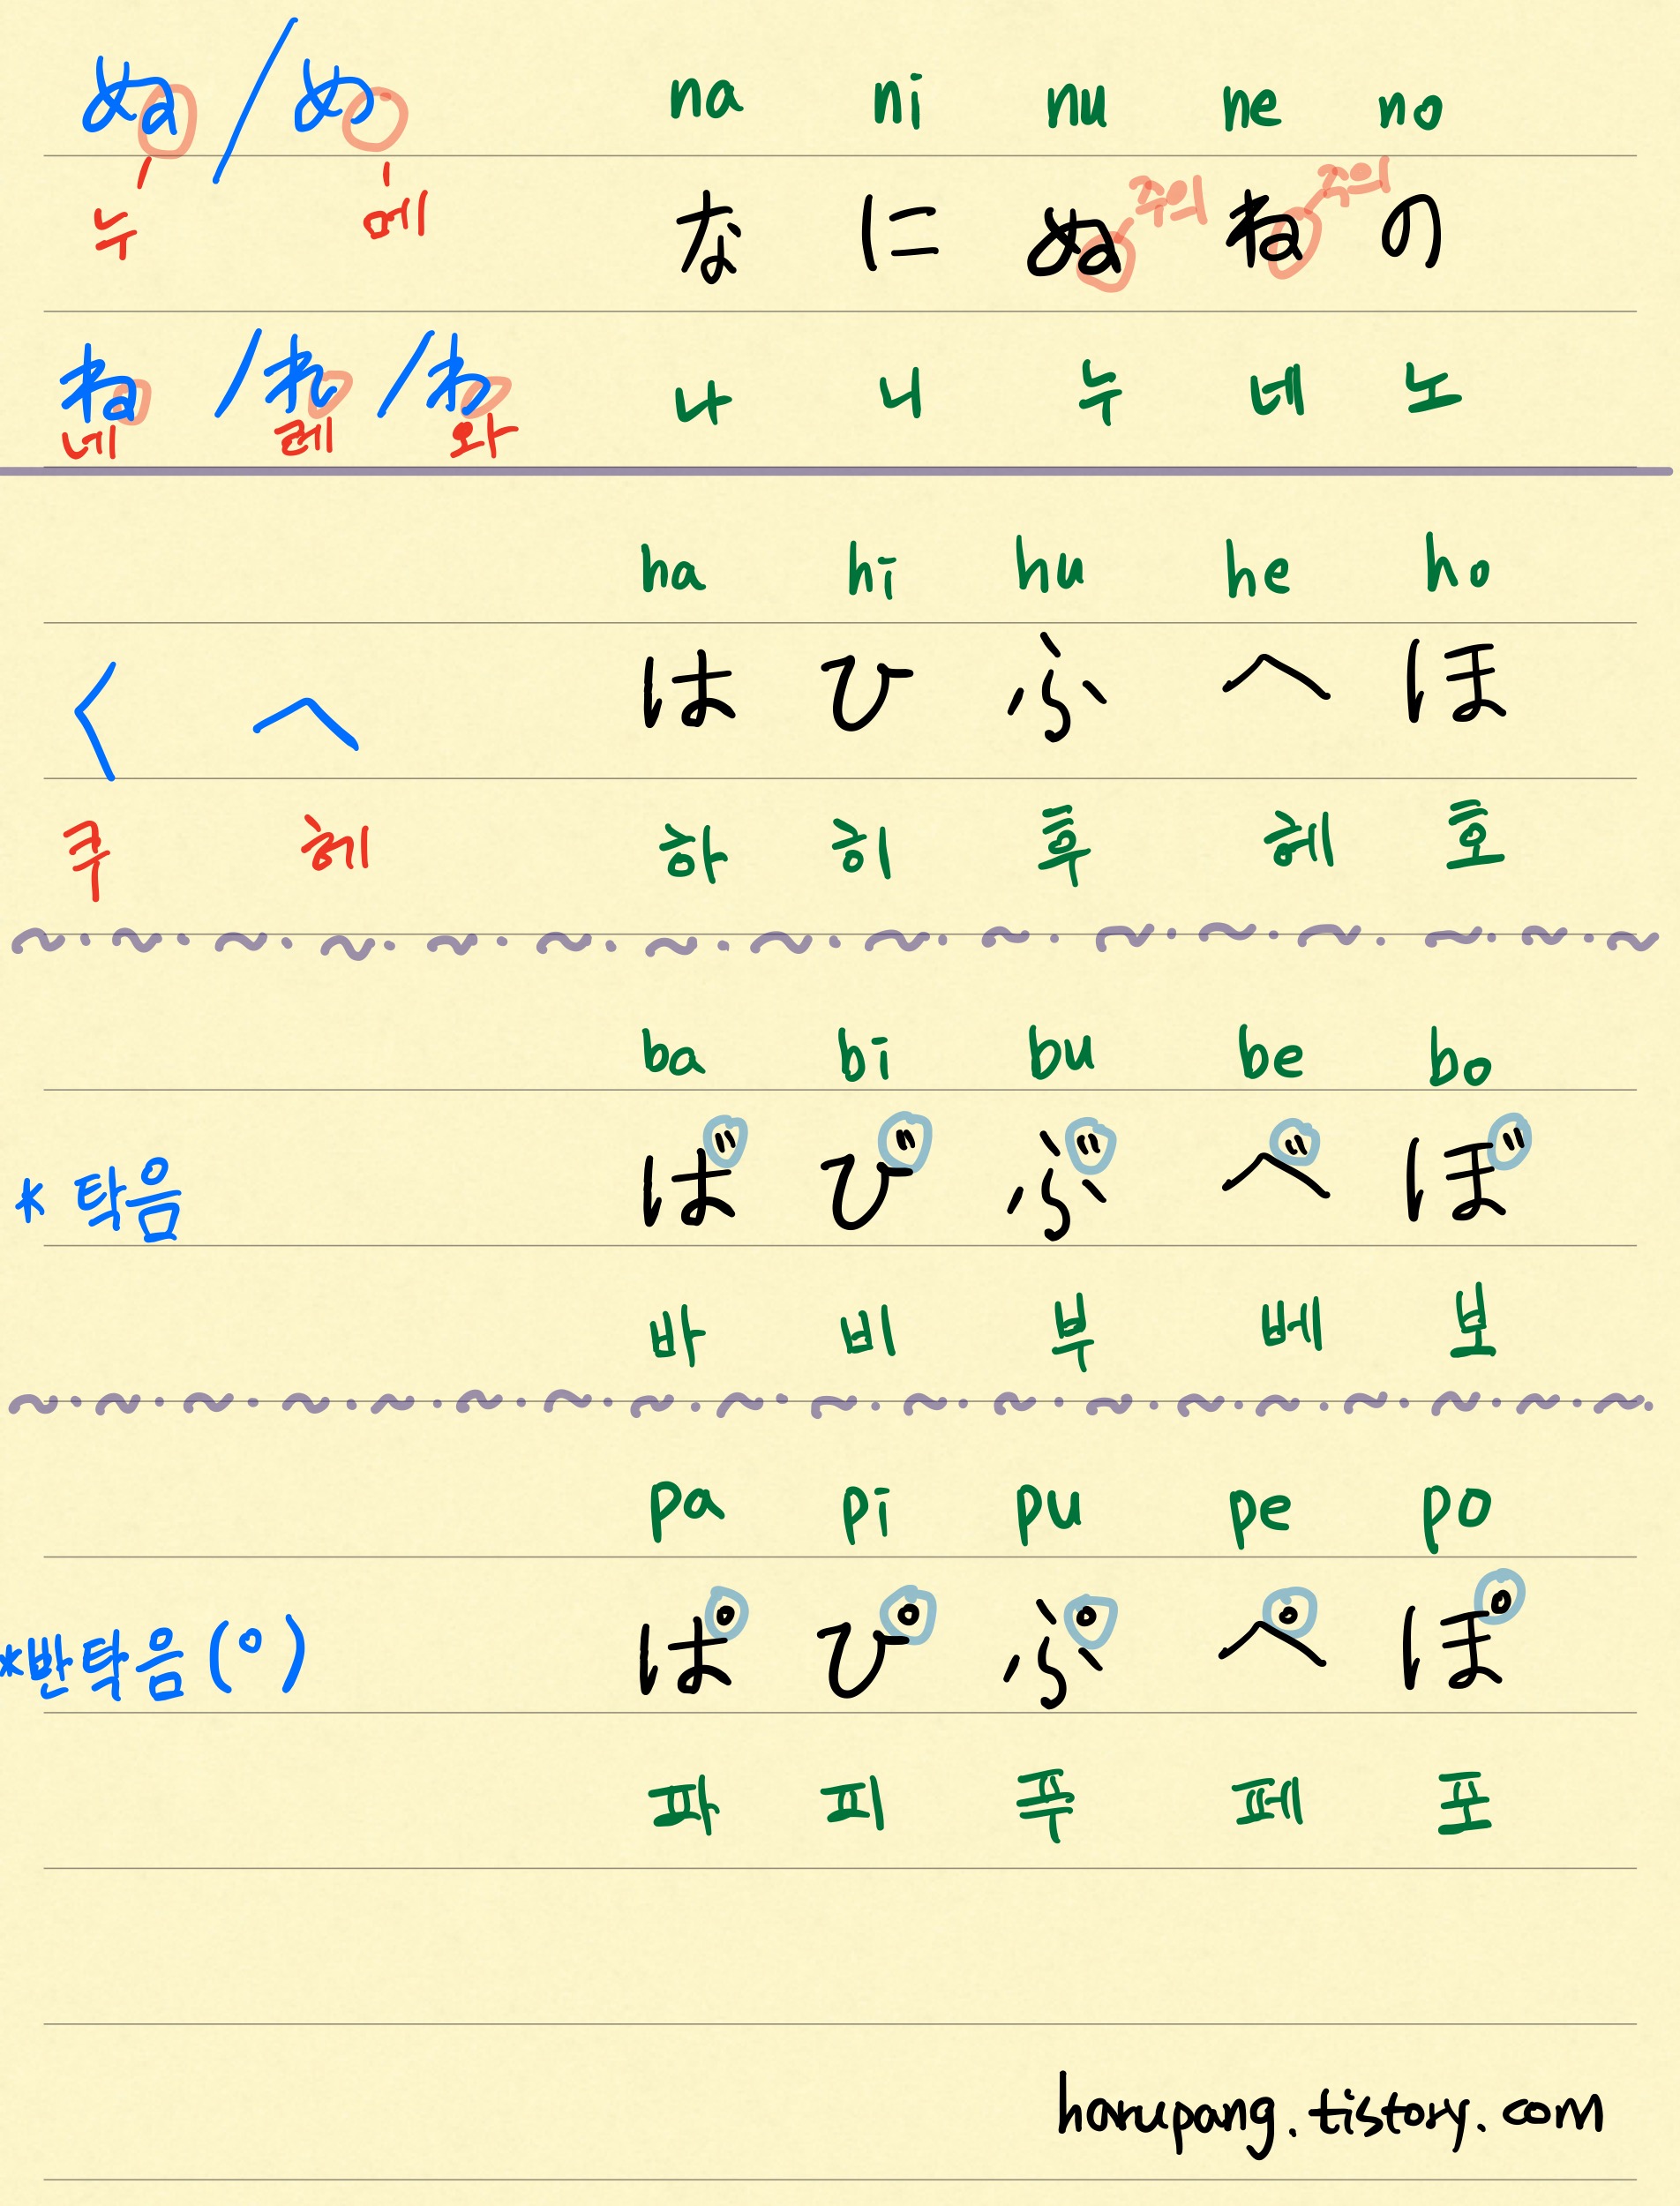 ぬ / め na ni nu ne no
주의 주의
누 메 な に ぬ ね の
ね / れ / わ 나 니 누 네 노
네 레 와
ha hi hu he ho
く へ は ひ ふ へ ほ
쿠 헤 하 히 후 헤 호
ba bi bu be bo
* 탁음 ば び ぶ べ ぼ
바 비 부 베 보
pa pi pu pe po
*반탁음(°) ぱ ぴ ぷ ぺ ぽ
파 피 푸 페 포
harupang.tistory.com